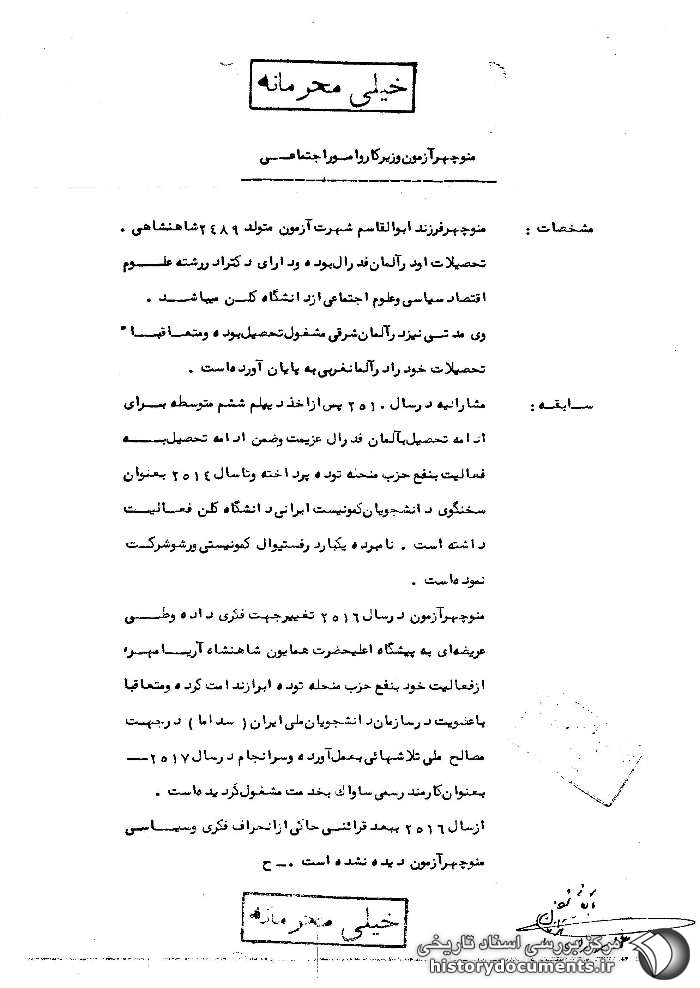 خیلی محرمانه
منوچهر آزمون وزیر کار و امور اجتماعی
مشخصات : منوچهر فرزند ابوالقاسم شهرت آزمون متولد ۲۴۸۹ شاهنشاهی .
تحصیلات او در آلمان فدرال بوده و دارای دکترا در رشته علوم
اقتصاد سیاسی و علوم اجتماعی از دانشگاه کلن میباشد .
وی مدتی نیز در آلمان شرقی مشغول تحصیل بوده و متعاقبا"
تحصیلات خود را در آلمان غربی به پایان آورده است .
سابقه : مشارالیه در سال ۲۵۱۰ پس از اخذ دیپلم ششم متوسطه برای
ادامه تحصیل بآلمان فدرال عزیمت و ضمن ادامه تحصیل به
فعالیت بنفع حزب منحله توده پرداخته و تا سال ۲۵۱۴ بعنوان
سخنگوی دانشجویان کمونیست ایرانی دانشگاه کلن فعالیت
داشته است . نامبرده یکبار در فستیوال کمونیستی ورشو شرکت
نموده است .
منوچهر آزمون در سال ۲۵۱۶ تغییر جهت فکری داده و طی
عریضه‌ای به پیشگاه اعلیحضرت همایون شاهنشاه آریامهر
از فعالیت خود بنفع حزب منحله توده ابراز ندامت کرده و متعاقبا
با عضویت در سازمان دانشجویان ملی ایران ( سداما ) در جهت
مصالح ملی تلاشهائی بعمل آورده و سرانجام در سال ۲۵۱۷
بعنوان کارمند رسمی ساواک بخدمت مشغول گردیده است .
از سال ۲۵۱۶ ببعد قرائنی حاکی از انحراف فکری و سیاسی
منوچهر آزمون دیده نشده است . ح
خیلی محرمانه
مرکز بررسی اسناد تاریخی
historydocuments.ir